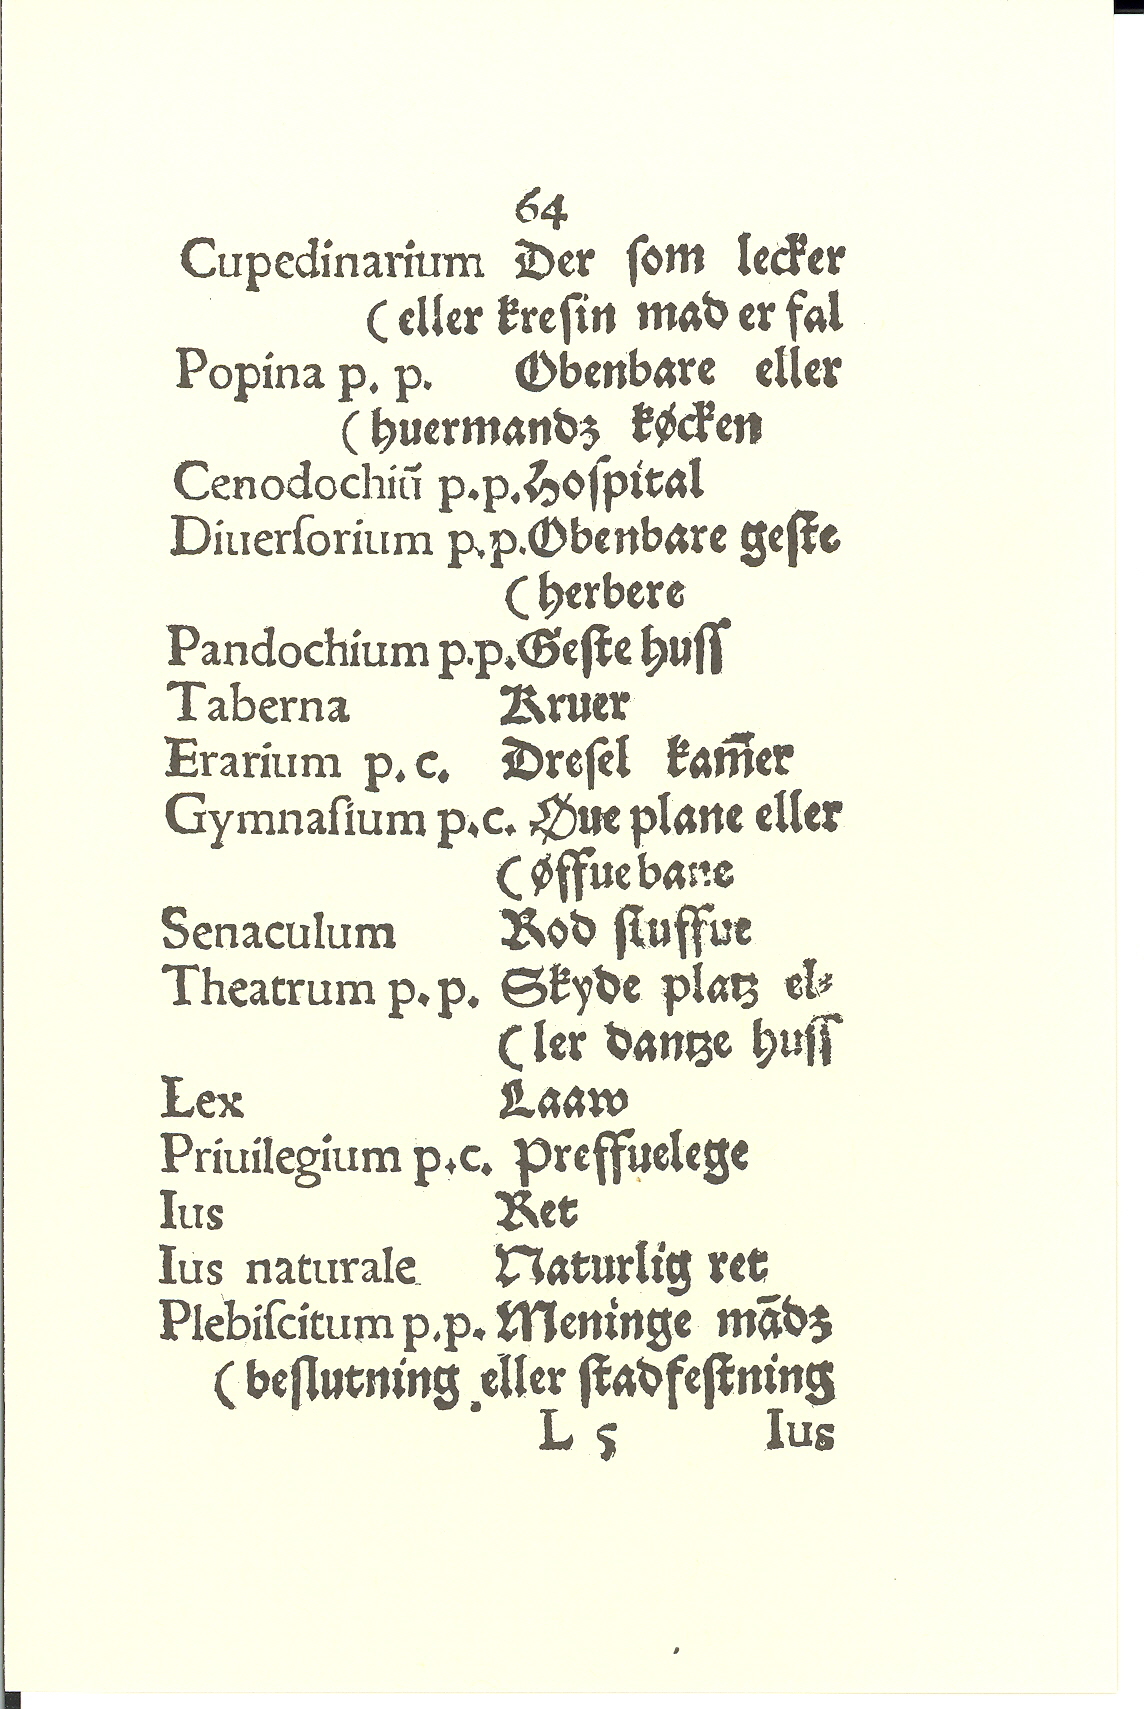 64
Cupedinarium Der ſom lecker
(eller kreſin mad er fal
Popina p. p. Obenbare eller
(huermandz køcken
Cenodochiũ p.p. Hoſpital
Diuerſorium p.p. Obenbare geſte
(herbere
Pandochium p.p. Geſte huſſ
Taberna Kruer
Erarium p. c. Dreſel kam̄er
Gymnaſium p.c. Øue plane eller
(øffue bane
Senaculum Rod ſtuffue
Theatrum p.p. Skyde platz el⸗
(ler dantze huſſ
Lex Laaw
Priuilegium p.c. Preffuelege
Ius Ret
Ius naturale Naturlig ret
Plebiſcitum p.p. Meninge mādz
(beſlutning eller ſtadfeſtning
L 5 Ius